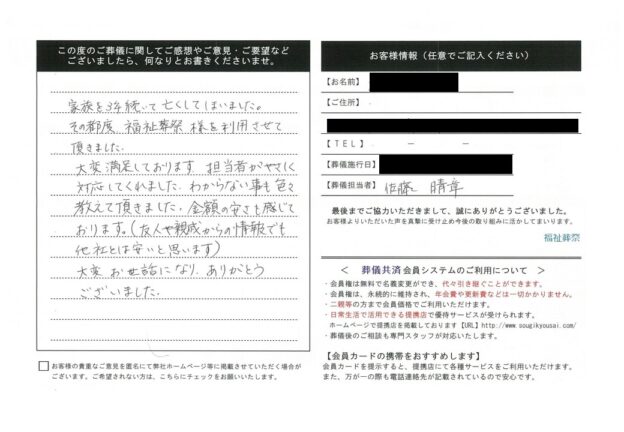 この度のご葬儀に関してご感想やご意見・ご要望など
ございましたら、何なりとお書きくださいませ。
家族を3年続いて亡くしてしまいました。
その都度、福祉葬祭様を利用させて
頂きました。
大変満足しております 担当者がやさしく
対応してくれました。わからない事も色々
教えて頂きました。金額の安さも感じて
おります。(友人や親戚からの情報でも
他社とは安いと思います)
大変お世話になり、ありがとう
ございました。
お客様の貴重なご意見を匿名にて弊社ホームページ等に掲載させていただく場合が
ございます。ご希望されない方は、こちらにチェックをお願いいたします。
お客様情報(任意でご記入ください)
【お名前】
【ご住所】
【TEL】 － －
【葬儀施行日】
【葬儀担当者】 佐藤 晴章
最後までご協力いただきまして、誠にありがとうございました。
お客様よりいただいた声を真摯に受け止め今後の取り組みに活かしてまいります。
福祉葬祭
＜ 葬儀共済 会員システムのご利用について ＞
・会員権は無料で名義変更ができ、代々引き継ぐことができます。
・会員権は、永続的に維持され、年会費や更新費などは一切かかりません。
・二親等の方まで会員価格でご利用いただけます。
・日常生活で活用できる提携店で優待サービスが受けられます。
ホームページで提携店を掲載しております【URL】http://www.sougikyousai.com/
・葬儀後のご相談も専門スタッフが対応いたします。
【会員カードの携帯をおすすめします】
会員カードを提示すると、提携店にて各種サービスをご利用いただけます。
また、万が一の際も電話連絡先が記載されているので安心です。